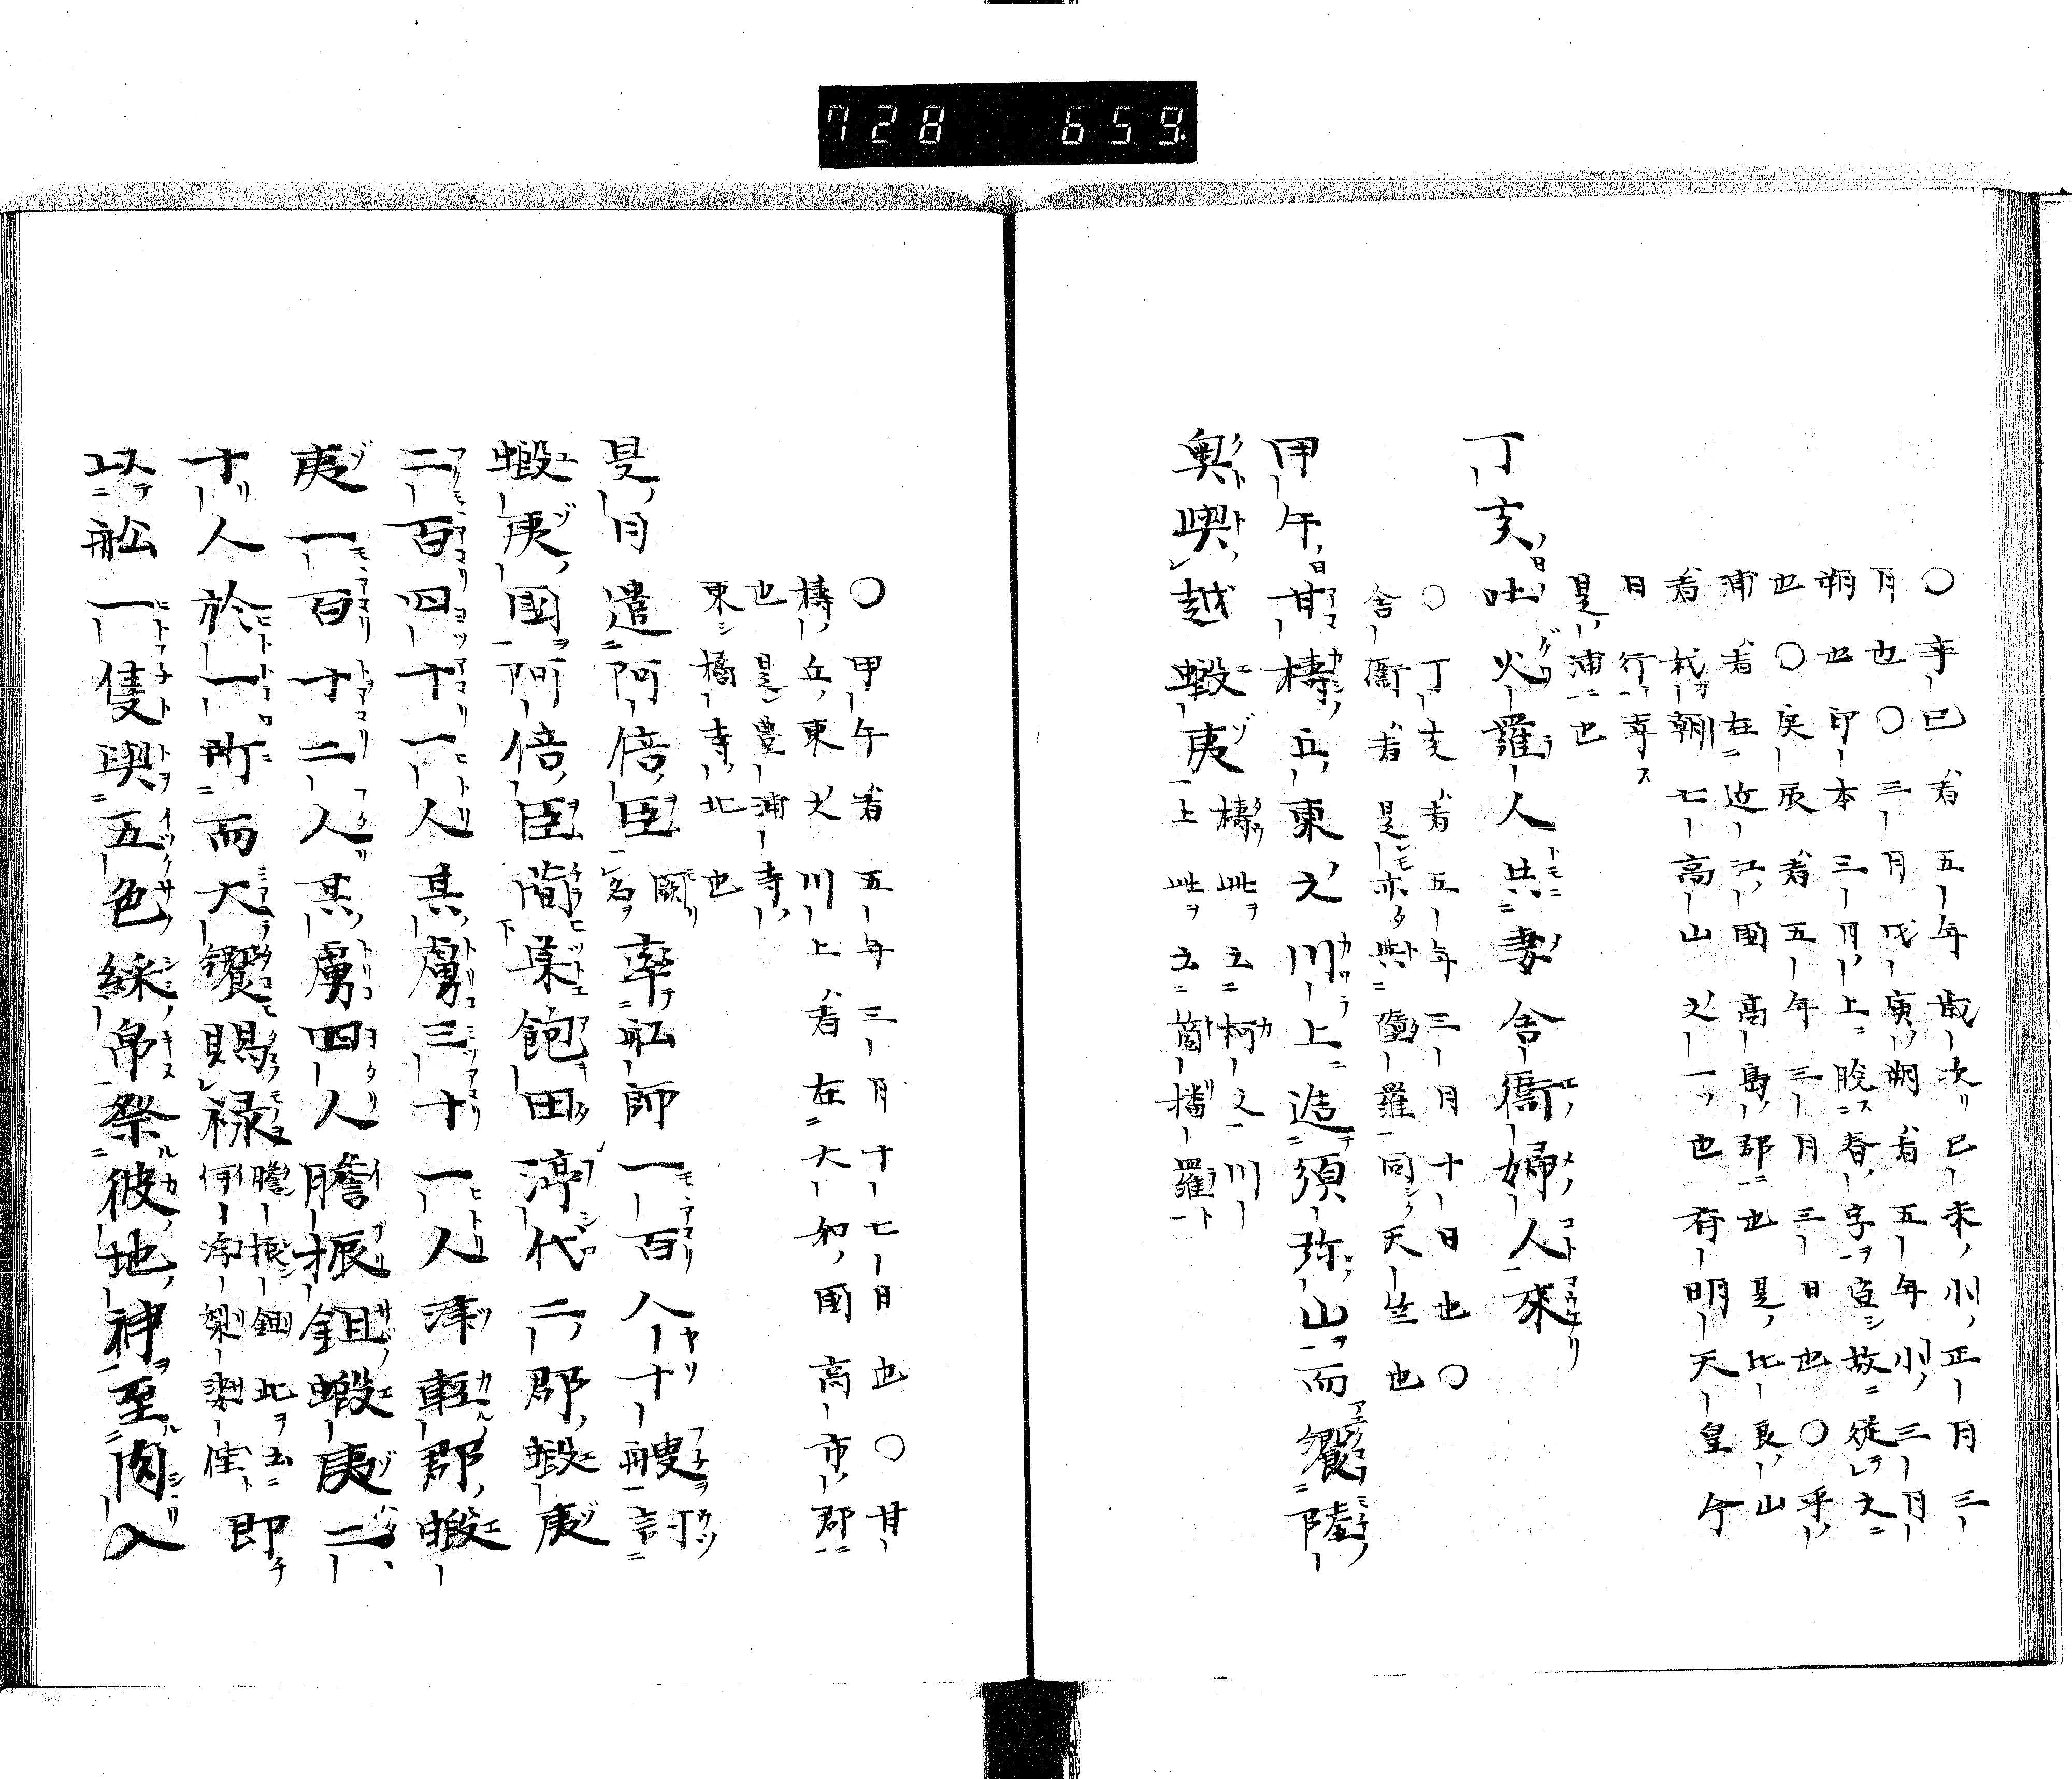 728 659
〇辛巳者五年歳次己未小正月三
月也〇三月戊庚朔者五年小三月
朔也印本三月上脱春字宣故従文
也〇戻辰者五年三月三日也〇乎
浦者在近江国高島郡也是比良山
着杙朝七高山之一也有明天皇今
日行幸
是浦也
丁亥吐火羅人共妻舎衛婦人来
〇丁亥者五年三月十日也〇
舎衛者是亦与堕羅同天竺也
甲午甘檮丘東之川上造須弥山而饗陸
奥與越蝦夷 檮此云柯之川上此云箇播羅
〇甲午者五年三月十七日也〇甘
檮丘東之川上者在大和国高市郡
也是豊浦寺
東橘寺北也
是月遣阿倍臣闕名率船師一百八十艘討
蝦夷国阿倍臣簡集飽田渟代二郡蝦夷
二百四十一人其虜三十一人津軽郡蝦
夷一百十二人其虜四人膽振鉏蝦夷二
十人於一所而大饗賜禄膽振鉏此云伊浮梨娑陛即
以船一隻與五色綵帛祭彼地神至肉入